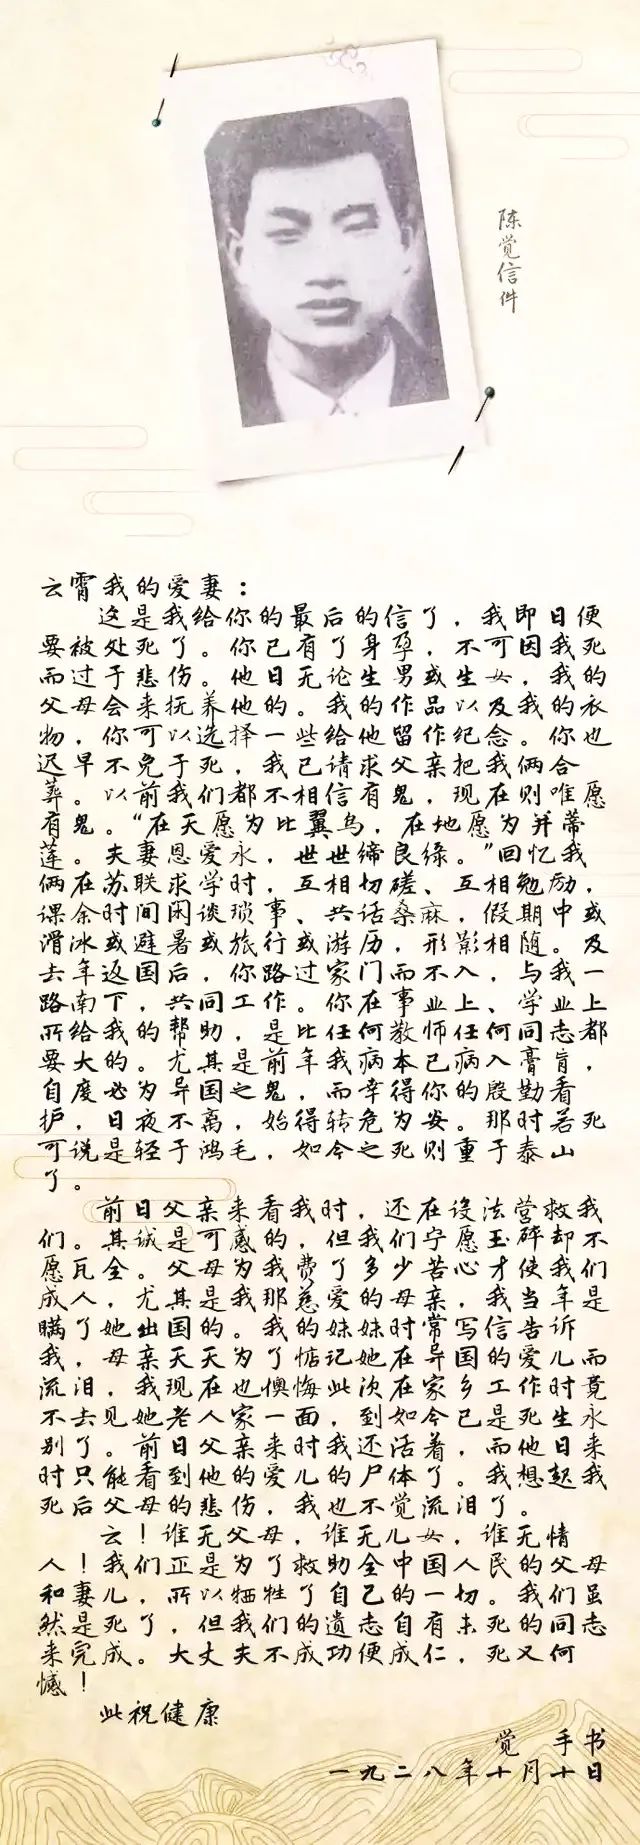 陈觉信件
云霄我的爱妻：
这是我给你的最后的信了，我即日便
要被处死了。你已有了身孕，不可因我死
而过于悲伤。他日无论生男或生女，我的
父母会来抚养他的。我的作品以及我的衣
物，你可以选择一些给他留作纪念。你也
迟早不免于死，我已请求父亲把我俩合
葬。以前我们都不相信有鬼，现在则唯愿
有鬼。“在天愿为比翼鸟，在地愿为并蒂
莲。夫妻恩爱永，世世缔良缘。”回忆我
俩在苏联求学时，互相切磋、互相勉励，
课余时间闲谈琐事、共话桑麻，假期中或
滑冰或避暑或旅行或游历，形影相随。及
去年返国后，你路过家门而不入，与我一
路南下，共同工作。你在事业上、学业上
所给我的帮助，是比任何教师任何同志都
要大的。尤其是前年我病本已病入膏肓，
自度必为异国之鬼，而幸得你的殷勤看
护，日夜不离，始得转危为安。那时若死
可说是轻于鸿毛，如今之死则重于泰山
了。
前日父亲来看我时，还在设法营救我
们。其诚是可感的，但我们宁愿玉碎却不
愿瓦全。父母为我费了多少苦心才使我们
成人，尤其是我那慈爱的母亲，我当年是
瞒了她出国的。我的妹妹时常写信告诉
我，母亲天天为了惦记她在异国的爱儿而
流泪，我现在也懊悔此次在家乡工作时竟
不去见她老人家一面，到如今已是死生永
别了。前日父亲来时我还活着，而他日来
时只能看到他的爱儿的尸体了。我想起我
死后父母的悲伤，我也不觉流泪了。
云！谁无父母，谁无儿女，谁无情
人！我们正是为了救助全中国人民的父母
和妻儿，所以牺牲了自己的一切。我们虽
然是死了，但我们的遗志自有未死的同志
来完成。大丈夫不成功便成仁，死又何
憾！
此祝健康
觉 手书
一九二八年十月十日